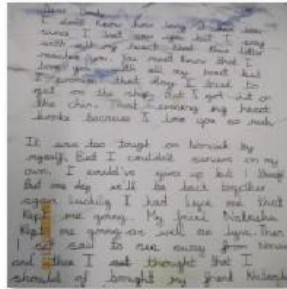 I don't know how long it has been
since I last saw you but I pray
with my heart that this letter
reaches you. You must know that I
love you with all my heart but
I promise that day I tried to
get on the ship. But I got hit on
the chin. That breaking my heart
breaks because I love you so much
It was too tough on by
myself. But I couldn't survive on my
own. I could've gave up but I
But one day we'll be back together
again luckily I had that
kept me going. My friend Natasha
kept me going as well as Then
I said to run away from
and then I thought that I
should of brought my friend